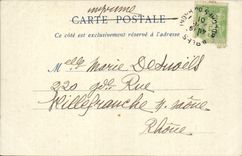 imprimé
CARTE POSTALE
Ce côté est exclusivement réservé à l'adresse
Melle Marie
220 Rue
Villefranche s/ Saône
Rhône